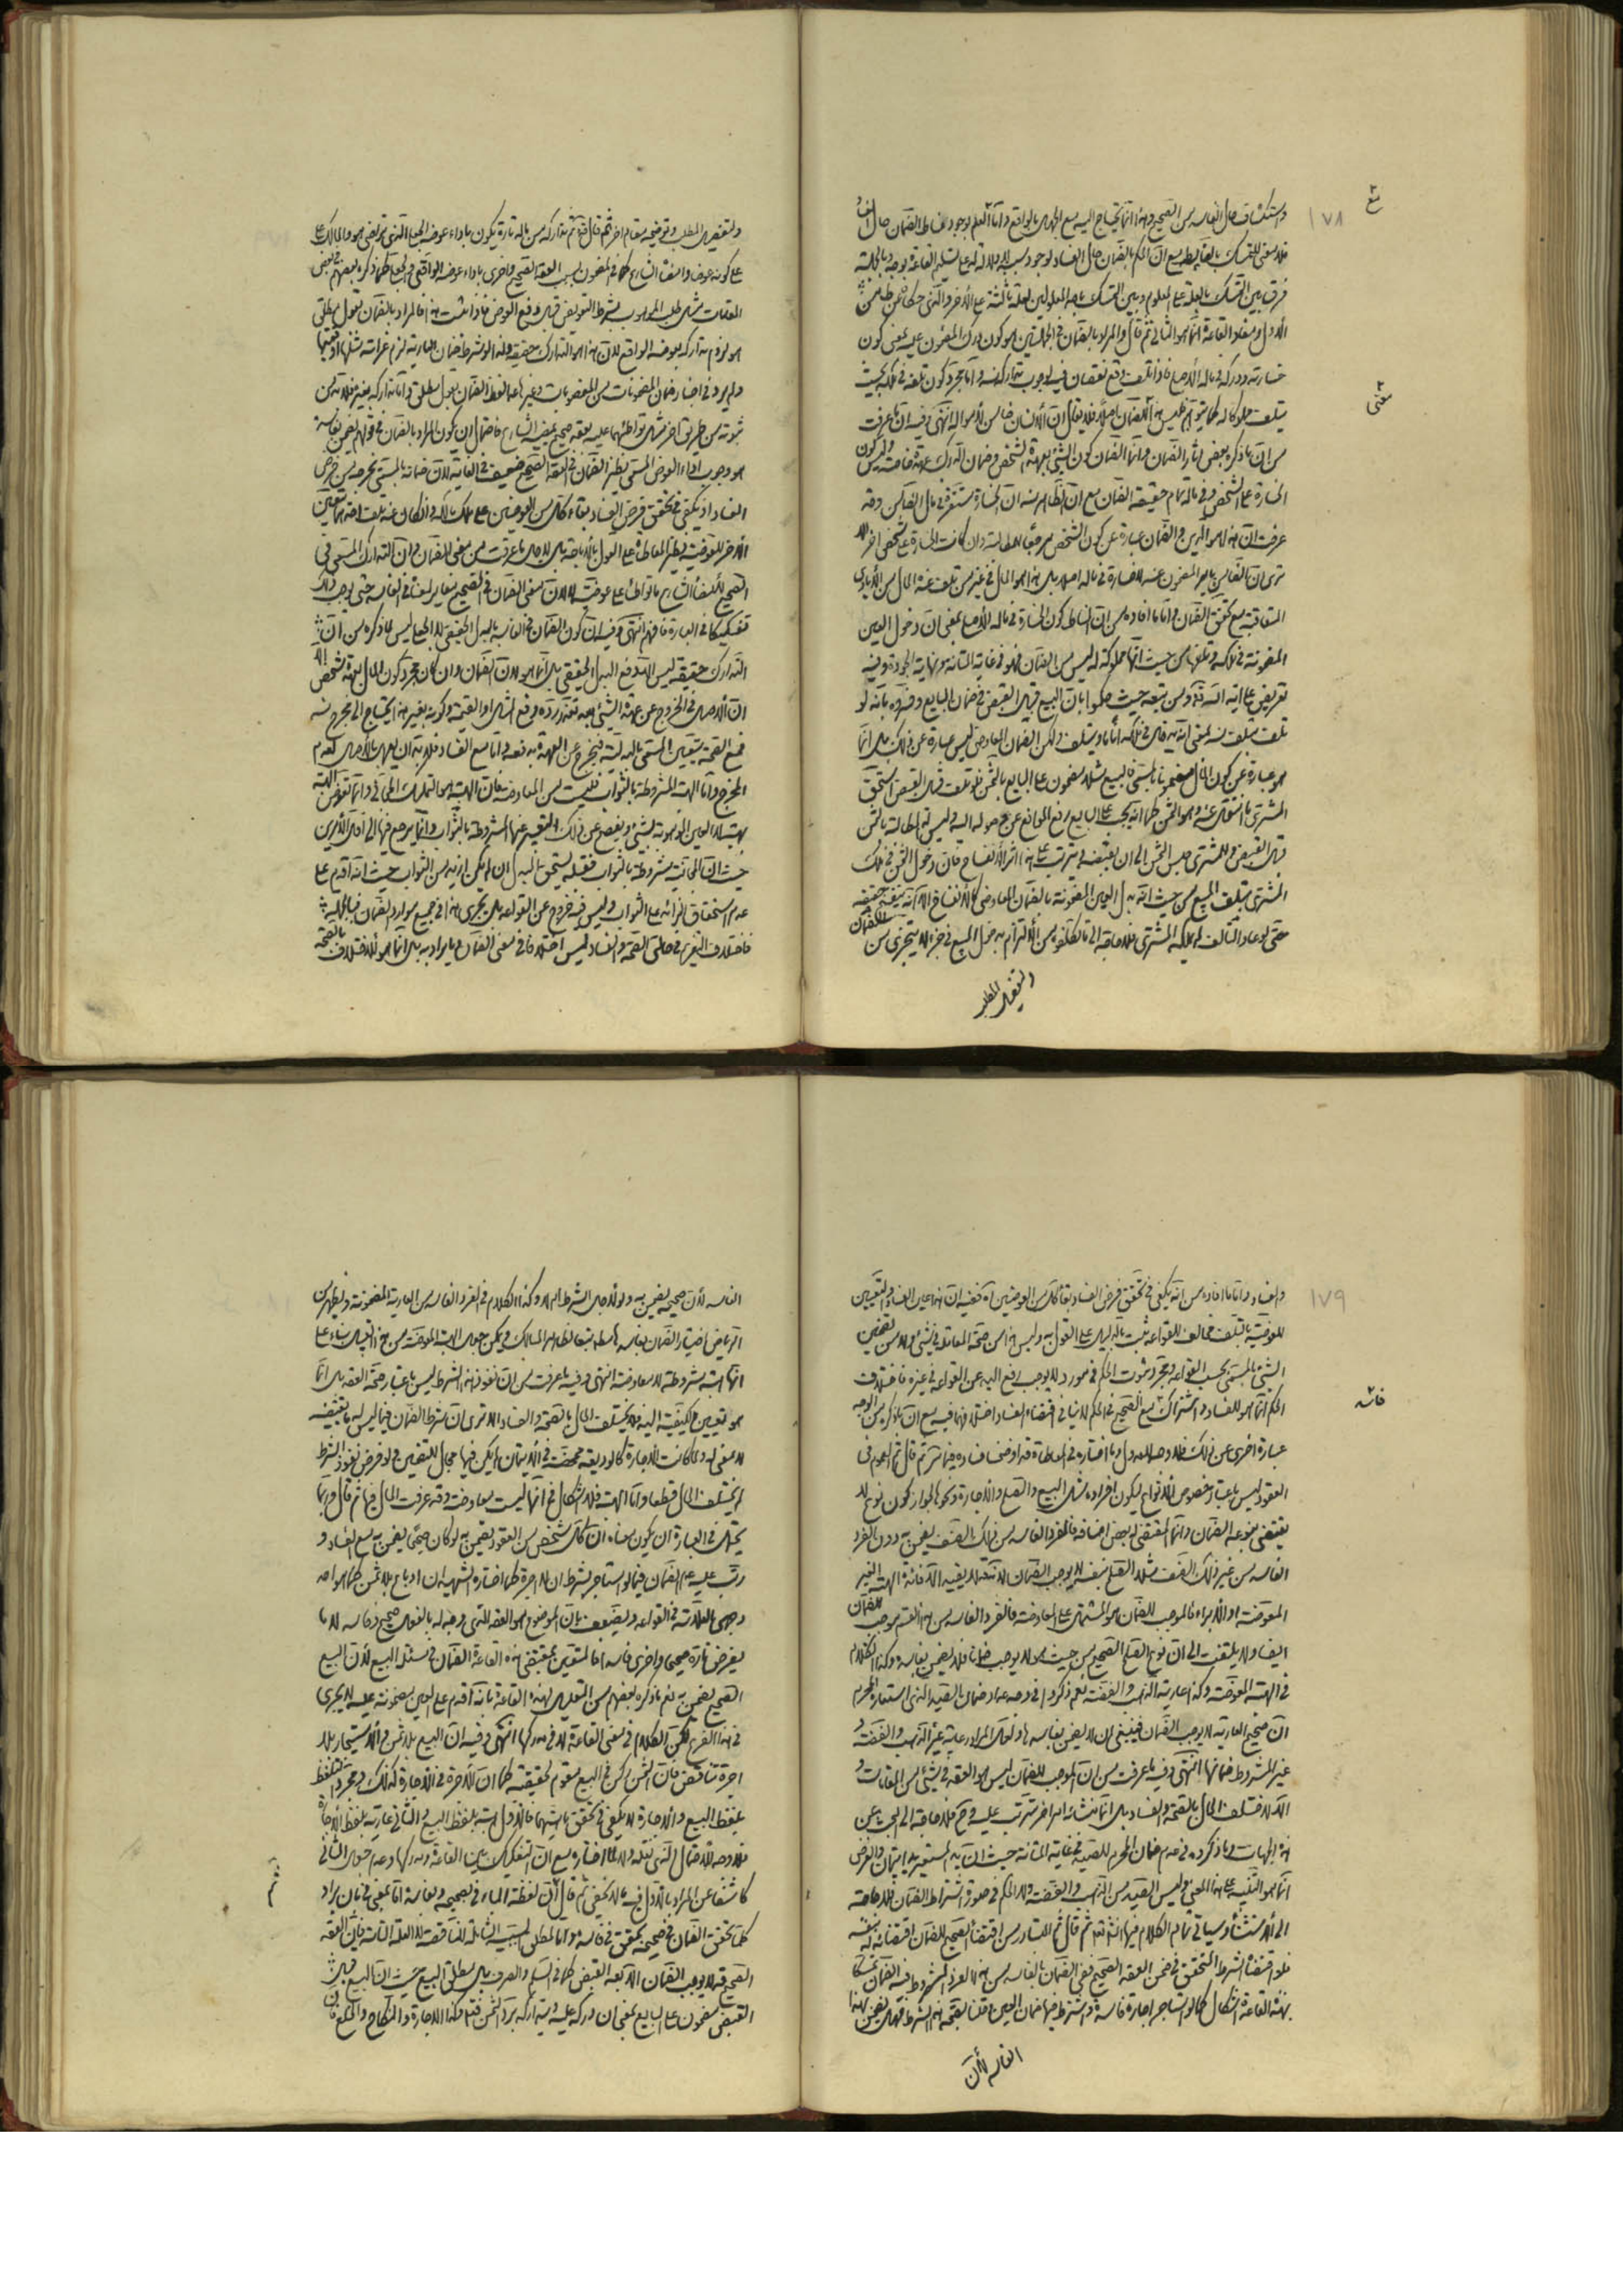 ١٧٨
واستكشاف حال الفاسد من الصحيح وهذا انما يحتاج اليه مع الجهل بالواقع وامّا العلم بوجود مناط الضمان حال
فلا معنى للتمسك بالقاعدة مع ان الحكم بالضمان حال الفساد لوجود سببه
فرق بين التمسك بالعلة على المعلول وبين التمسك باحد المعلولين لعلة ثالثة على الآخر
الاول ومفاد القاعدة انما هو الثاني ثم قال والمراد بالضمان في الجملتين هو كون درك المضمون عليه بمعنى كون
خسارته ودركه في ماله الاصلي فاذا تلف وقع نقصان فيه لوجوب تداركه منه وامّا مجرد كون تلفه في ملكه بحيث
يتلف مملوكا له كما يتوهم فليس هذا الضمان اصلا فلا يقال ان الانسان ضامن لامواله انتهى وفيه ان ما عرفت
من ان ما ذكره بعض آثار الضمان وانما الضمان كون الشيء بعهدة الشخص وضمان الدرك
الخسارة على الشخص وفي ماله تمام حقيقة الضمان مع ان الظاهر منه ان الخسارة تستقر في مال الضامن وقد
عرفت ان هذا هو الدين والضمان عبارة عن كون الشخص مرجعا للمطالبة وان كانت الخسارة على شخص آخر
المتعاقبة مع تحقق الضمان وامّا ما افاده من ان المناط كون الخسارة في ماله الاصلي بمعنى ان دخول العين
المضمونة في ملكه وتلفها من حيث انها مملوكة له ليس من الضمان فهو في غاية المتانة ونهاية الجودة وفيه
تعريض على آية الله ومن تبعه حيث حكموا بان المبيع قبل القبض في ضمان البايع وفسروه بانه لو
تلف يتلف منه بمعنى انه يدخل في ملكه آناً ما ويتلف ولكن الضمان المعاوضي ليس عبارة عن ذلك بل انما
هو عبارة عن كون المال مضمونا بالمسمى فالمبيع مثلا مضمون على البايع بالثمن فلو تلف قبل القبض استحق
المشتري ما انتقل عنه وهو الثمن كما انه يجب على البايع رفع المانع عن وصوله اليه وليس له المطالبة بالثمن
قبل القبض وللمشتري حبس الثمن الى ان يقبضه ويترتب على هذا اثر الانفساخ فان دخول الثمن في ملك
المشتري بتلف المبيع من حيث انه بدل العين المضمونة بالضمان المعاوضي كالانفساخ الا انه ليس حقيقة
حتى لو عاد التالف لم يملكه المشتري فلا حاجة الى ما تكلفوه من الالتزام بدخول المبيع في جزء لا يتجزى من
وتفصيل المطلب
وتفصيل المطلب وتوضيحه مقام آخر ثم قال ثم تداركه من ماله تارة يكون باداء عوضه الجعلي الذي تراضى هو والمالك على
على كونه عوضا وامضاه الشارع كما في المضمون بسبب العقد الصحيح واخرى باداء عوضه الواقعي
المقامات مثل تلف الموهوب بشرط التعويض قبل دفع العوض فاذا ثبت هذا فالمراد بالضمان بقول مطلق
هو لزوم تداركه بعوضه الواقعي لان هذا هو التدارك حقيقة ولذا لو شرط ضمان العارية لزم غرامة مثلها او قيمتها
ولم يرد في اخبار ضمان المضمونات من المغصوبات وغيرها عدا لفظ الضمان بقول مطلق وامّا تداركه بغيره فلا بد من
ثبوته من طريق آخر مثل تواطئهما عليه بعقد صحيح يمضيه الشارع فاحتمال ان يكون المراد بالضمان في قولهم يضمن بفاسده
هو وجوب اداء العوض المسمى نظير الضمان في العقد الصحيح ضعيف في الغاية لا لان ضمانه بالمسمى يخرجه من فرض
الفساد اذ يكفي في تحقق فرض الفساد بقاء كل من العوضين على ملك مالكه وان كان عند تلف احدهما يتعين
الآخر للعوضية نظير المعاطاة على القول بالاباحة بل لاجل ما عرفت من معنى الضمان وان التدارك بالمسمى في
الصحيح لامضاء الشارع ما تواطئا على عوضيته لا لان معنى الضمان في الصحيح مغاير لمعناه في الفاسد حتى يوجب ذلك
تفكيكا في العبارة فافهم انتهى وفيه ان كون الضمان في الفاسد بالبدل الحقيقي لا الجعلي ليس لما ذكره من ان
التدارك حقيقة ليس الا بدفع البدل الحقيقي بل انما هو لان الضمان وان كان مجرد كون المال بعهدة شخص الا
ان الاصل في الخروج عن عهدة الشيء بعد تعذر رده هو دفع المثل او القيمة وكونه بغير هذا يحتاج الى مخرج
فمع الصحة يتعين المسمى بالبدلية فيخرج عن العهدة بدفعه وامّا مع الفساد فلا بد ان يعمل بالاصل لعدم
المخرج وامّا الهبة المشروطة بالثواب فليست من المعاوضة فان الهبة هو التمليك المجاني وانما تعوض الهبة
حيث ان المجانية مشروطة بالثواب
عدم استحقاق الزائد على الثواب وليس فيه خروج عن القواعد بل يجري هذا في جميع موارد الضمان فبالجملة
فاختلاف التغريم في حالتي الصحة والفساد ليس اختلافا في معنى الضمان وما يراد به بل انما هو لاختلاف الصحة
١٧٩
والفساد وامّا ما افاده من انه يكفي في تحقق فرض الفساد بقاء كل من العوضين آه ففيه ان هذا عين الفساد والتعيين
للعوضية بالتلف مخالف للقواعد ثبت بالدليل على القول به وليس هذا من صحة المعاملة في شيء
الشيء بالمسمى بحسب القواعد ومجرد ثبوت الحكم في مورد لا يوجب رفع اليد عن القواعد في غيره فاختلاف
الحكم انما هو للفساد واشتراك مع الصحيح في الحكم لا ينافي اقتضاء الفساد اختلافهما فيه مع ان ما ذكره من الوجه
عبارة اخرى عن ذلك فلا وجه للعدول وما اختاره في المعاطاة قد اوضحنا فساده فيما مر ثم قال ثم العموم في
العقود ليس باعتبار خصوص الانواع ليكون افراده مثل البيع والصلح والاجارة ونحوها لجواز كون نوع لا
يقتضي بنوعه الضمان وانما المقتضي له بعض اصنافه فالفرد الفاسد من ذلك الصنف يضمن به دون الفرد
الفاسد من غير ذلك الصنف مثلا الصلح بنفسه لا يوجب الضمان لانه قد لا يفيد الا فائدة الهبة الغير
المعوضة او الابراء فالموجب للضمان هو المشتمل على المعاوضة فالفرد الفاسد من هذا القسم موجب للضمان
ايضا ولا يلتفت الى ان نوع الصلح الصحيح من حيث هو لا يوجب ضمانا فلا يضمن بفاسده وكذا الكلام
في الهبة المعوضة وكذا عارية الذهب والفضة نعم ذكروا في وجه عدم ضمان الصيد الذي استعاره المحرم
ان صحيح العارية لا يوجب الضمان فينبغي ان لا يضمن بفاسدها ولعل المراد عارية غير الذهب والفضة و
غير المشروط ضمانها انتهى وفيه ما عرفت من ان الموجب للضمان ليس هو العقد في شيء من المقامات و
الا لاختلف الحال بالصحة والفساد بل انما منشائه امر آخر يترتب عليه وح فلا حاجة الى البحث عن
هذه الجهات وما ذكروه في عدم ضمان المحرم للصيد في غاية المتانة حيث ان يد المستعير يد ايتمان والغرض
انما هو التنبيه على هذا المعنى وليس الصيد من الذهب والفضة والحكم في صورة اشتراط الضمان
الى الاستثناء وسيأتي تمام الكلام فيها انشاء الله ثم قال ثم المتبادر من اقتضاء الصحيح للضمان اقتضائه له بنفسه
فلو اقتضاه الشرط المتحقق في ضمن العقد الصحيح ففي الضمان بالفاسد من هذا الفرد المشروط فيه الضمان تمسكا
بهذه القاعدة اشكال كما لو استاجر اجارة فاسدة واشترط فيها ضمان العين وقلنا بصحة هذا الشرط فهل يضمن بهذا
الفاسد لأن
الفاسد لأن صحيحه يضمن به ولو لاجل الشرط ام لا وكذا الكلام في الفرد الفاسد من العارية المضمونة ويظهر من
الرياض اختيار الضمان بفاسدها مطلقا تبعا لظاهر المسالك ويمكن جعل الهبة المعوضة من هذا القبيل بناء على
انها هبة مشروطة لا معاوضة انتهى وفيه ما عرفت من ان نفوذ هذا الشرط ليس باعتبار صحة العقد بل انما
هو تعيين لكيفية اليد فلا يختلف الحال بالصحة والفساد الا ترى ان شرط الضمان فيما ليس له ما يقتضيه
لا معنى له ولما كانت الاجارة كالوديعة محضة في الايتمان لم يكن فيها مجال للتضمين ولو فرض نفوذ الشرط
لم يختلف الحال قطعا وامّا الهبة فلا اشكال في انها ليست بمعاوضة وقد عرفت الحال فيها ثم قال وربما
يحتمل في العبارة ان يكون معناه ان كل شخص من العقود يضمن به لو كان صحيحا يضمن به مع الفساد و
رتب عليه عدم الضمان فيما لو استاجر بشرط ان لا اجرة كما اختاره الشهيدان او باع بلا ثمن كما هو احد
وجهي العلامة في القواعد ويضعف بان الموضوع هو العقد الذي وجد له بالفعل صحيح وفاسد لا ما
يفرض تارة صحيحا واخرى فاسدا فالمتعين بمقتضى هذه القاعدة الضمان في مسئلة البيع لان البيع
الصحيح يضمن به نعم ما ذكره بعضهم من التعليل لهذه القاعدة بانه اقدم على العين مضمونة عليه لا يجري
في هذا الفرع لكن الكلام في معنى القاعدة لا في مدركها انتهى وفيه ان البيع بلا ثمن والاستيجار بلا
اجرة تناقض فان الثمن ركن في البيع مقوم لحقيقته كما ان الاجرة في الاجارة كذلك ومجرد التلفظ
بلفظ البيع والاجارة لا يكفي في تحقق ماهيتهما فالاول هبة بلفظ البيع والثاني عارية بلفظ الاجارة
فلا وجه للاحتمال الذي نقله ولا لما اختاره مع ان التفكيك بين القاعدة ومدركها وعدم جعل الثاني
كاشفا عن المراد بالاول فيه ما لا يخفى ثم قال ثم ان لفظة الباء في بصحيحه وبفاسده امّا بمعنى في بان يراد
كلما تحقق الضمان في صحيحه تحقق في فاسده وامّا لمطلق السببية الشاملة للناقصة لا العلة التامة فان العقد
الصحيح قد لا يوجب الضمان الا بعد القبض كما في السلم والصرف بل مطلق البيع حيث ان المبيع قبل
القبض مضمون على البايع بمعنى ان دركه عليه ويتداركه برد الثمن فتامل وكذا الاجارة والنكاح والخلع فان